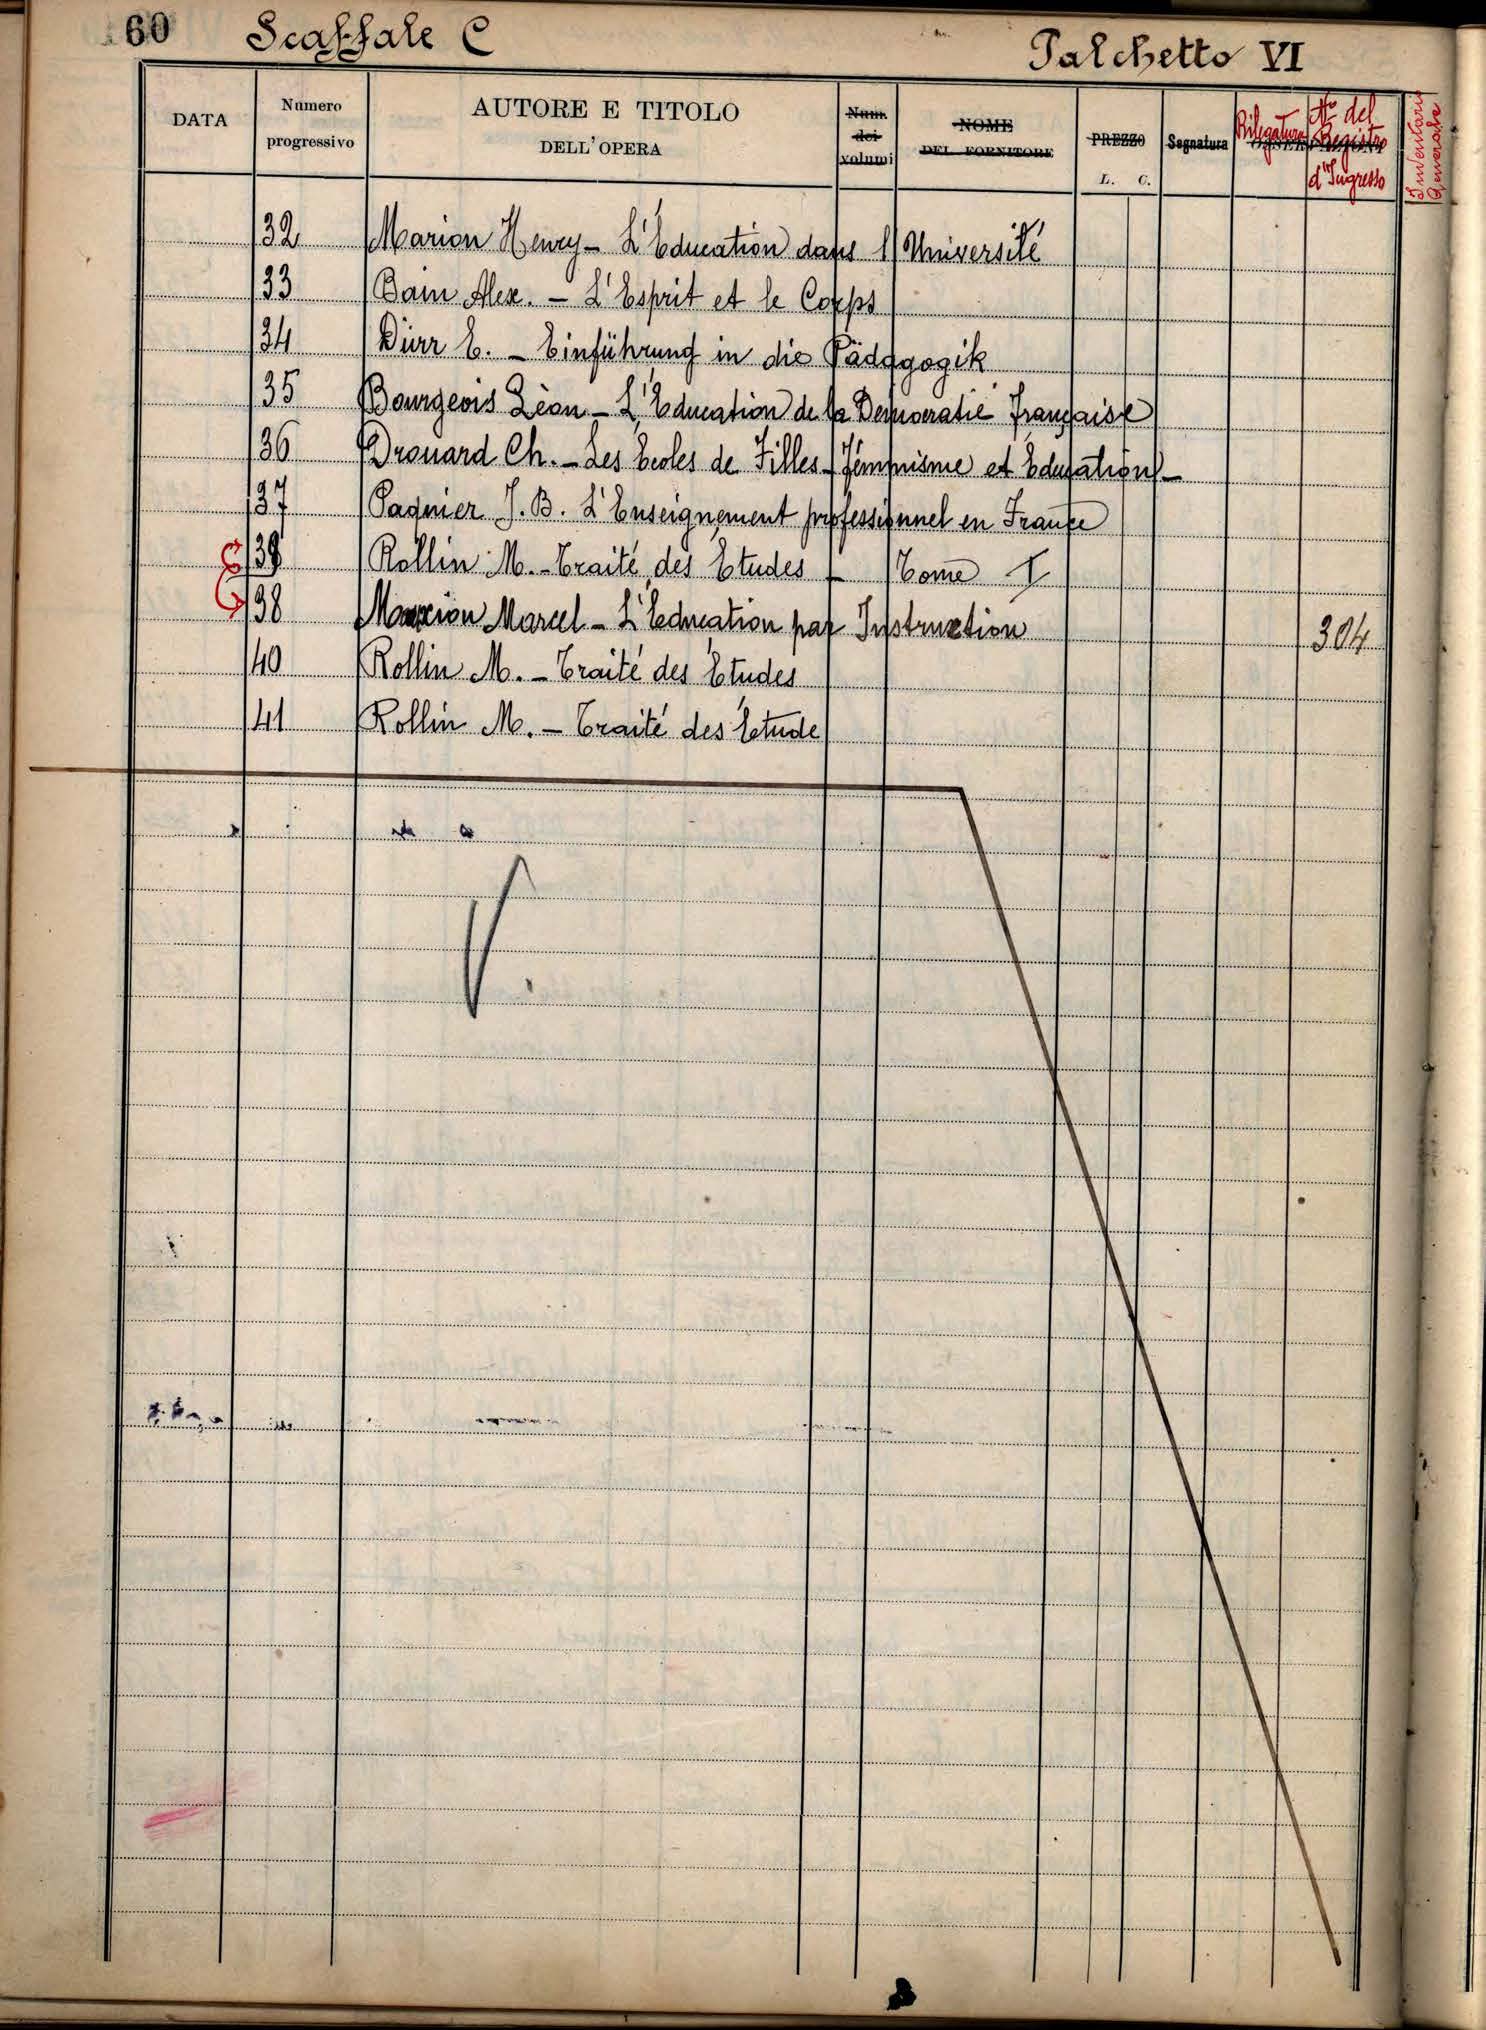 60 Scaffale C Palchetto VI
DATA
Numero
progressivo
AUTORE E TITOLO
DELL'OPERA
Num.
dei
volumi
NOME
DEL FORNITORE
PREZZO
L. C.
Segnatura
Rilegatura
No del
Registro
d'Ingresso
Inventario
Generale
32 Marion Henry - L'Éducation dans l'Université
33 Bain Alex. - L'Esprit et le Corps
34 Dürr E. - Einführung in die Pädagogik
35 Bourgeois Lèon - L'Éducation de la Democratie française
36 Drouard Ch. - Les Ecoles de Filles - Féminisme et Éducation -
37 Paquier J. B. L'Enseignement professionnel en France
39 Rollin M. - Traité des Études - Tome I
38 Marion Marcel - L'Éducation par Instruction 304
40 Rollin M. - Traité des Études
41 Rollin M. - Traité des Étude